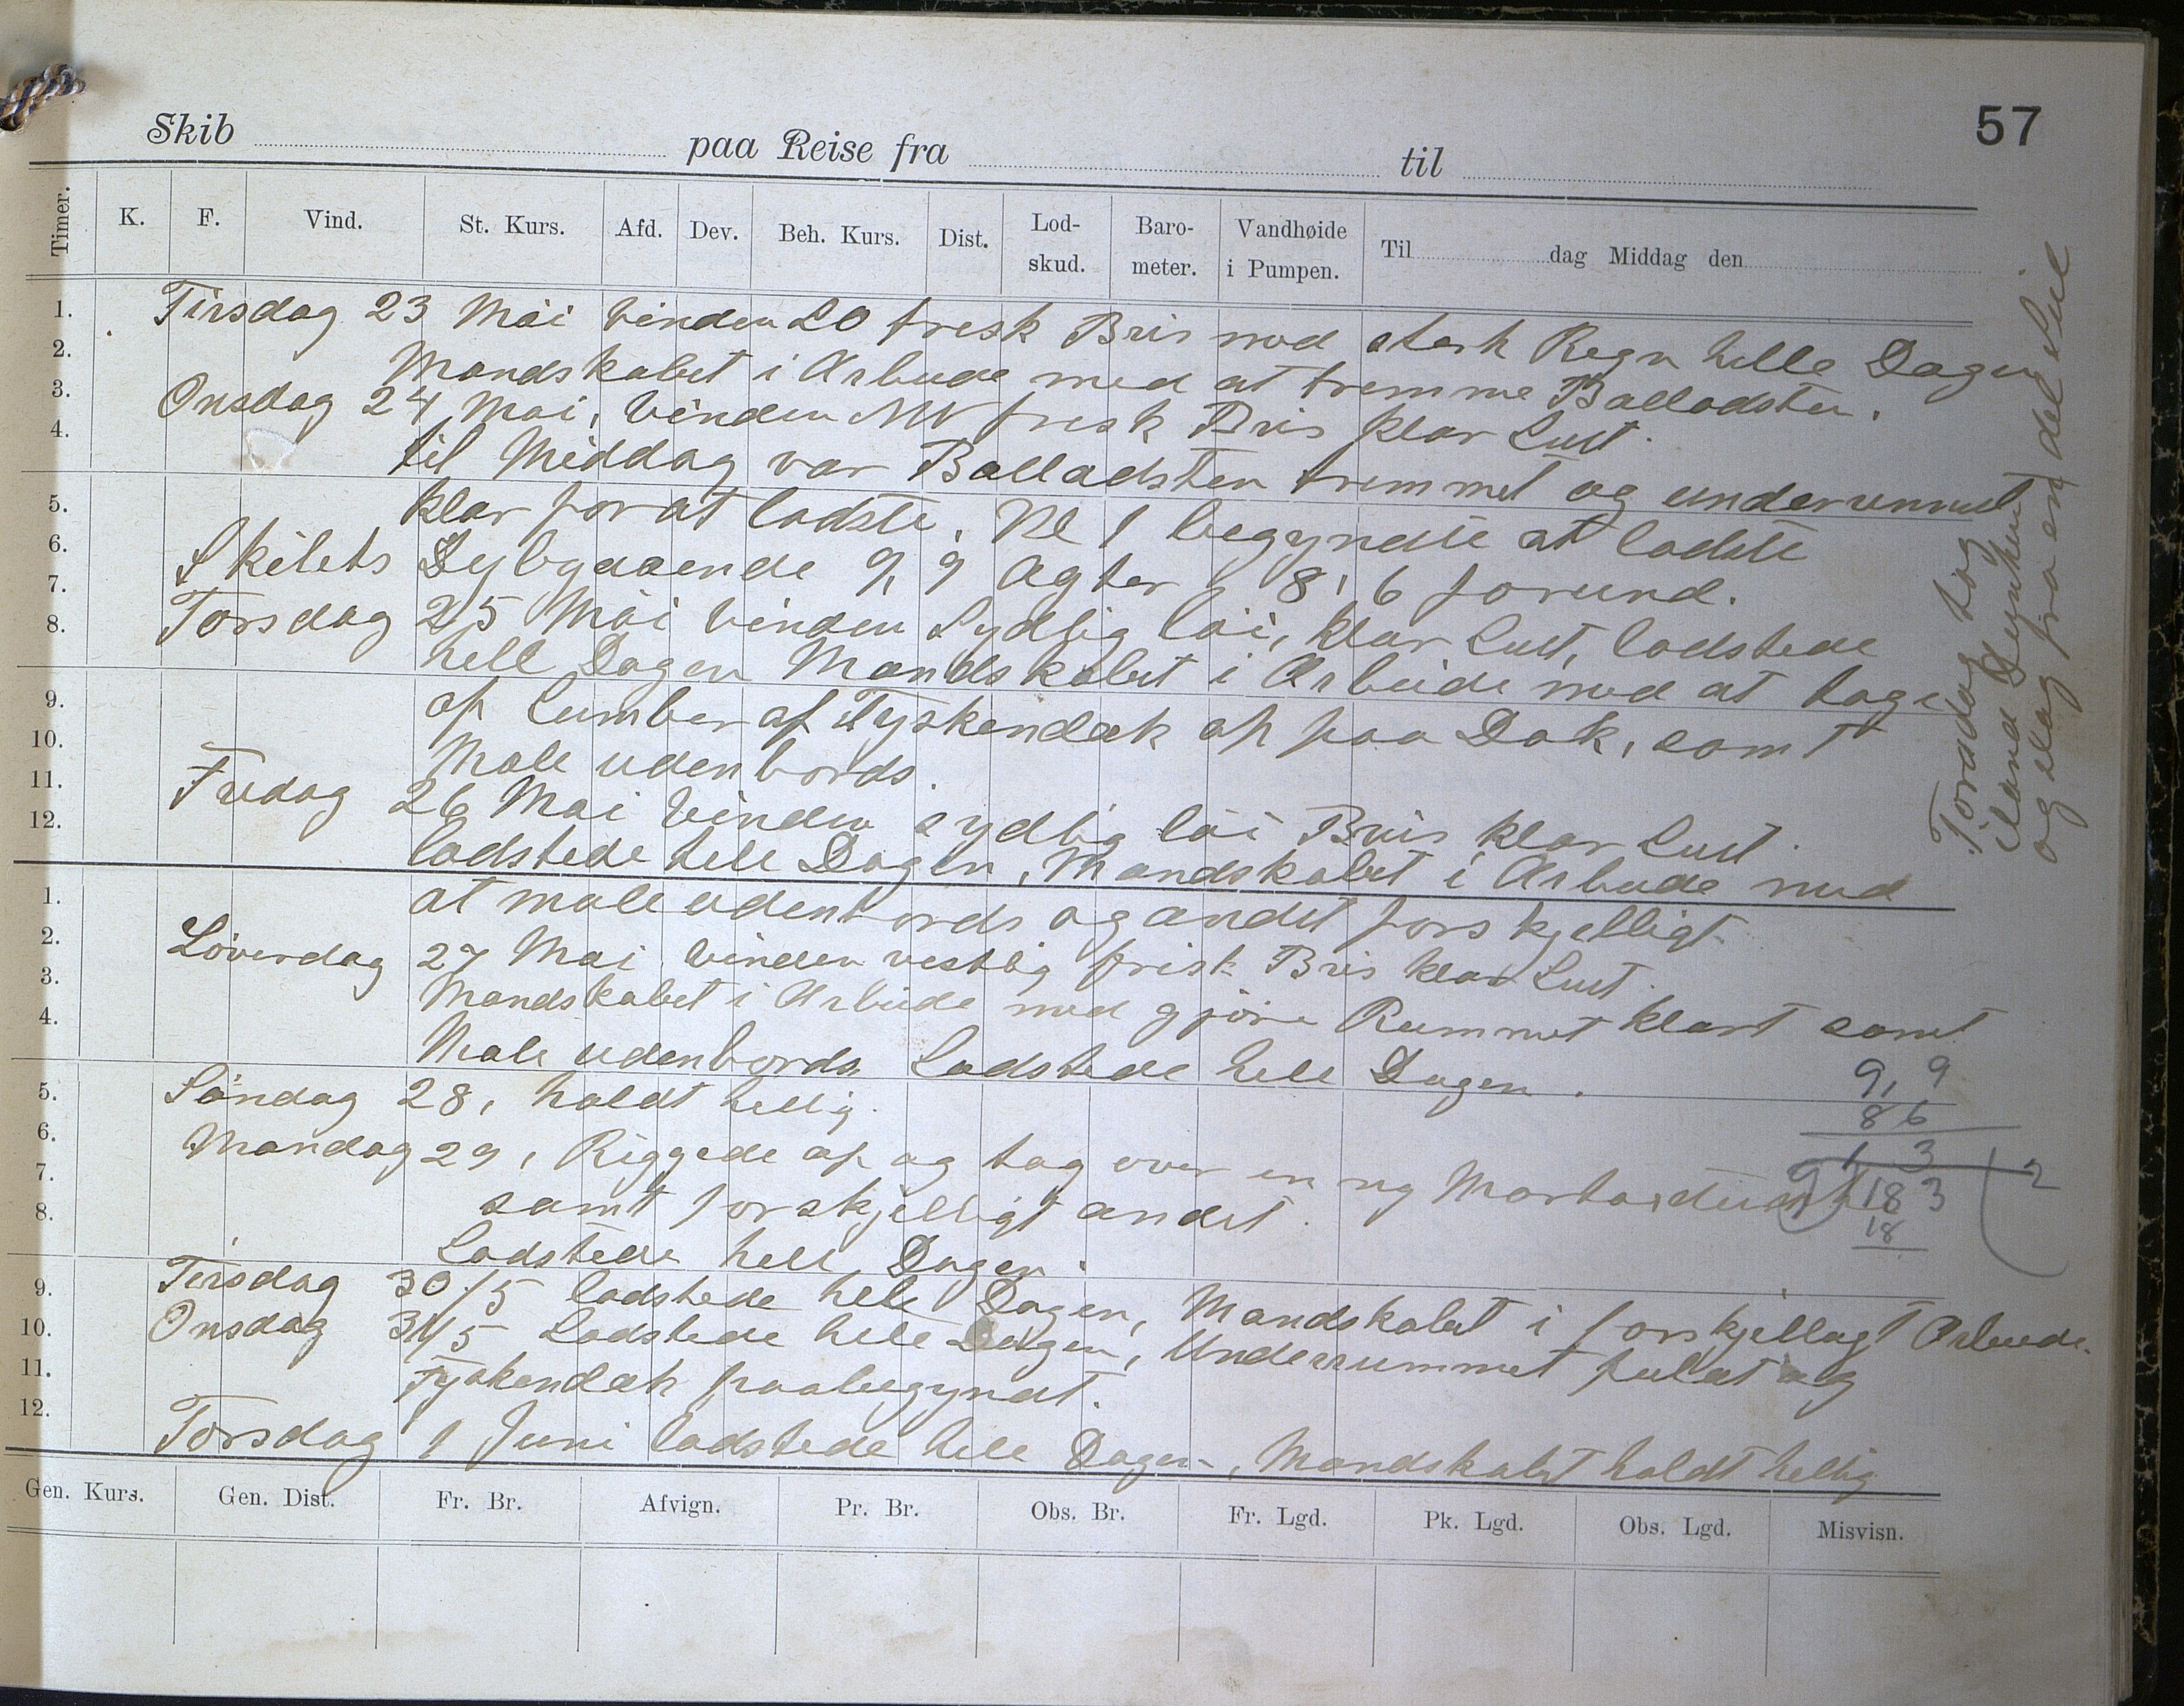 57
Skib paa Reise fra til
Timer. K. F. Vind. St. Kurs. Afd. Dev. Beh. Kurs. Dist. Lod-skud. Baro-meter. Vandhøide i Pumpen. Til dag Middag den
Tirsdag 23 Mai Vinden SO fresk Bris med sterk Regn helle Dagen
Mandskabet i Arbeide med at tremme Balladsten.
Onsdag 24 Mai, Vinden NW fresk Bris klar Luft.
til Middag var Balladsten tremmet og underrummet
klar for at ladste. Kl 1 begyndte at ladste
Skibets Dybgaaende 9,9 Agter 8,6 forund.
Torsdag 25 Mai Vinden Sydlig løi, klar Luft, ladstede
hell Dagen Mandskabet i Arbeide med at tage
op Lumber af Tyskendæk op paa Dæk, samt
Male udenbords.
Fredag 26 Mai Vinden sydlig løi Bris klar Luft.
ladstede hele Dagen, Mandskabet i Arbeide med
at male udenbords og andet forskjelligt.
Löverdag 27 Mai Vinden vestlig frisk Bris klar Luft.
Mandskabet i Arbeide med gjøre Rummet klart samt
Male udenbords Ladstede hele Dagen.
Søndag 28, holdt hellig.
Mandag 29, Riggede op og tog over en ny
samt forskjelligt andet.
Ladstede hele Dagen.
Tirsdag 30/5 ladstede hele Dagen, Mandskabet i forskjelligt Arbeide.
Onsdag 31/5 Ladstede hele Dagen, Underrummet fuldt og
Tyskendæk paabegyndt.
Torsdag 1 Juni ladstede hele Dagen, Mandskabet holdt hellig
Torsdag tog
iland Dynken
og slag fra en del Seil
9,9
86
1 3
9 183 2
18
1.
2.
3.
4.
5.
6.
7.
8.
9.
10.
11.
12.
1.
2.
3.
4.
5.
6.
7.
8.
9.
10.
11.
12.
Gen. Kurs. Gen. Dist. Fr. Br. Afvign. Pr. Br. Obs. Br. Fr. Lgd. Pk. Lgd. Obs. Lgd. Misvisn.